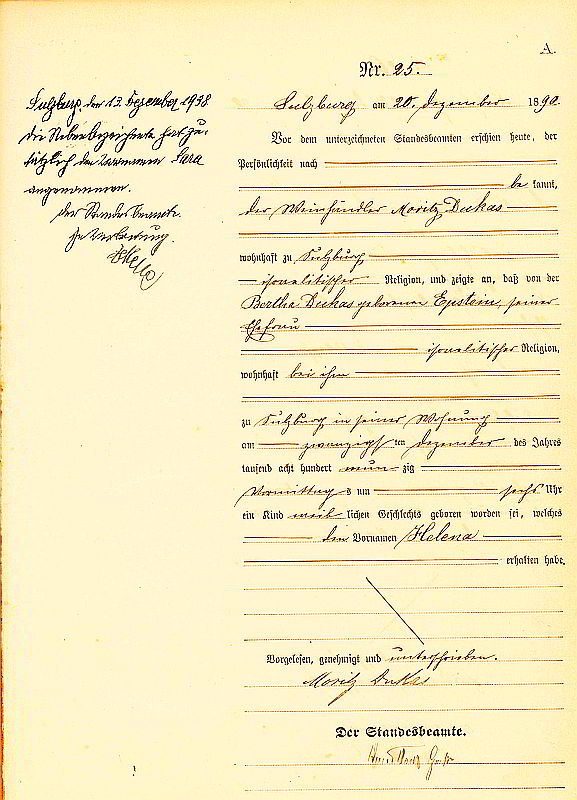 A.
Nr. 25.
Sulzburg, den 13. Dezember 1938
die Nebenbezeichnete hat zu-
sätzlich den Vornamen Sara
angenommen.
Der Standesbeamte
In Vertretung.
Sulzburg am 20. Dezember 1890.
Vor dem unterzeichneten Standesbeamten erschien heute, der
Persönlichkeit nach
be kannt,
der Weinhändler Moritz Dukas
wohnhaft zu Sulzburg
israelitischer Religion, und zeigte an, daß von der
Bertha Dukas geborenen Epstein, seiner
Ehefrau
israelitischer Religion,
wohnhaft bei ihm
zu Sulzburg in seiner Wohnung
am zwanzigsten Dezember des Jahres
tausend acht hundert neun zig
Vormittags um sechs Uhr
ein Kind weib lichen Geschlechts geboren worden sei, welches
den Vornamen Helena
erhalten habe.
Vorgelesen, genehmigt und unterschrieben.
Moritz Dukas
Der Standesbeamte.